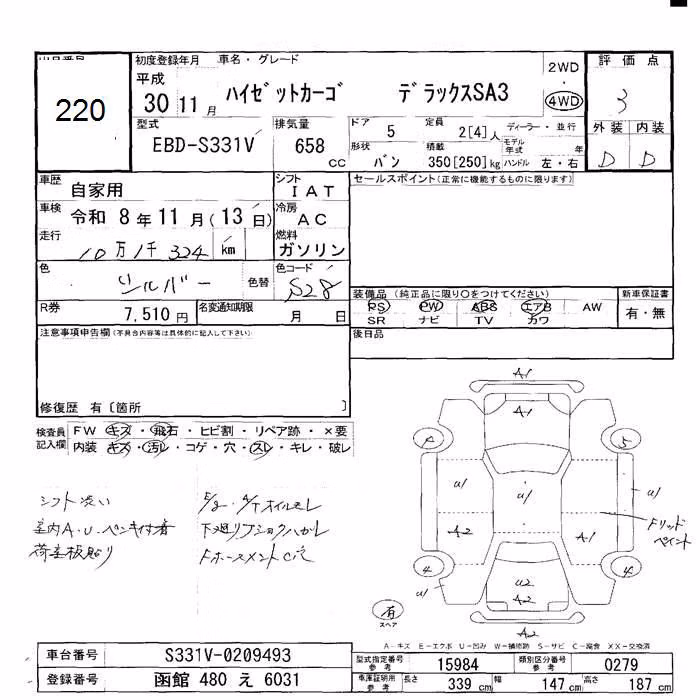 初度登録年月 車名・グレード
220
平成 30 11月 ハイゼットカーゴ デラックスSA3
2WD
・
4WD
評価点
3
外装 内装
D D
型式 EBD-S331V
排気量 658 CC
ドア 5 定員 2[4]人 ディーラー・並行
形状 バン 積載 350[250]kg モデル年式 年
ハンドル 左・右
車歴 自家用
シフト IAT
セールスポイント(正常に機能するものに限ります)
車検 令和 8年11月(13日)
冷房 AC
走行 10万1千324 km
燃料 ガソリン
色 シルバー 色替
色コード S28
R券 7,510円 名変通知期限 月 日
装備品(純正品に限り○をつけてください) 新車保証書
PS PW ABS エアB AW 有・無
SR ナビ TV カワ
注意事項申告欄(不具合内容等は具体的に記入して下さい)
後日品
修復歴 有〔箇所 〕
検査員記入欄 FW キズ・飛石・ヒビ割・リペア跡・×要
内装 キズ・汚レ・コゲ・穴・スレ・キレ・破レ
シフト渋い
室内A.U.ペンキ付着
荷室板貼り
E/g.A/Tオイルモレ
下廻りフショクハガレ
A1
A1
4 5
U1 U1 U1
A2 A1
Fリッド
ペイント
4 4
U1
U2
A2
A2
有
スペア
A-キズ E-エクボ U-凹み W-補修跡 S-サビ C-腐食 XX-交換済
車台番号 S331V-0209493
登録番号 函館 480 え 6031
型式指定番号 参考 15984 類別区分番号 参考 0279
車庫証明用 参考 長さ 339cm 幅 147cm 高さ 187cm